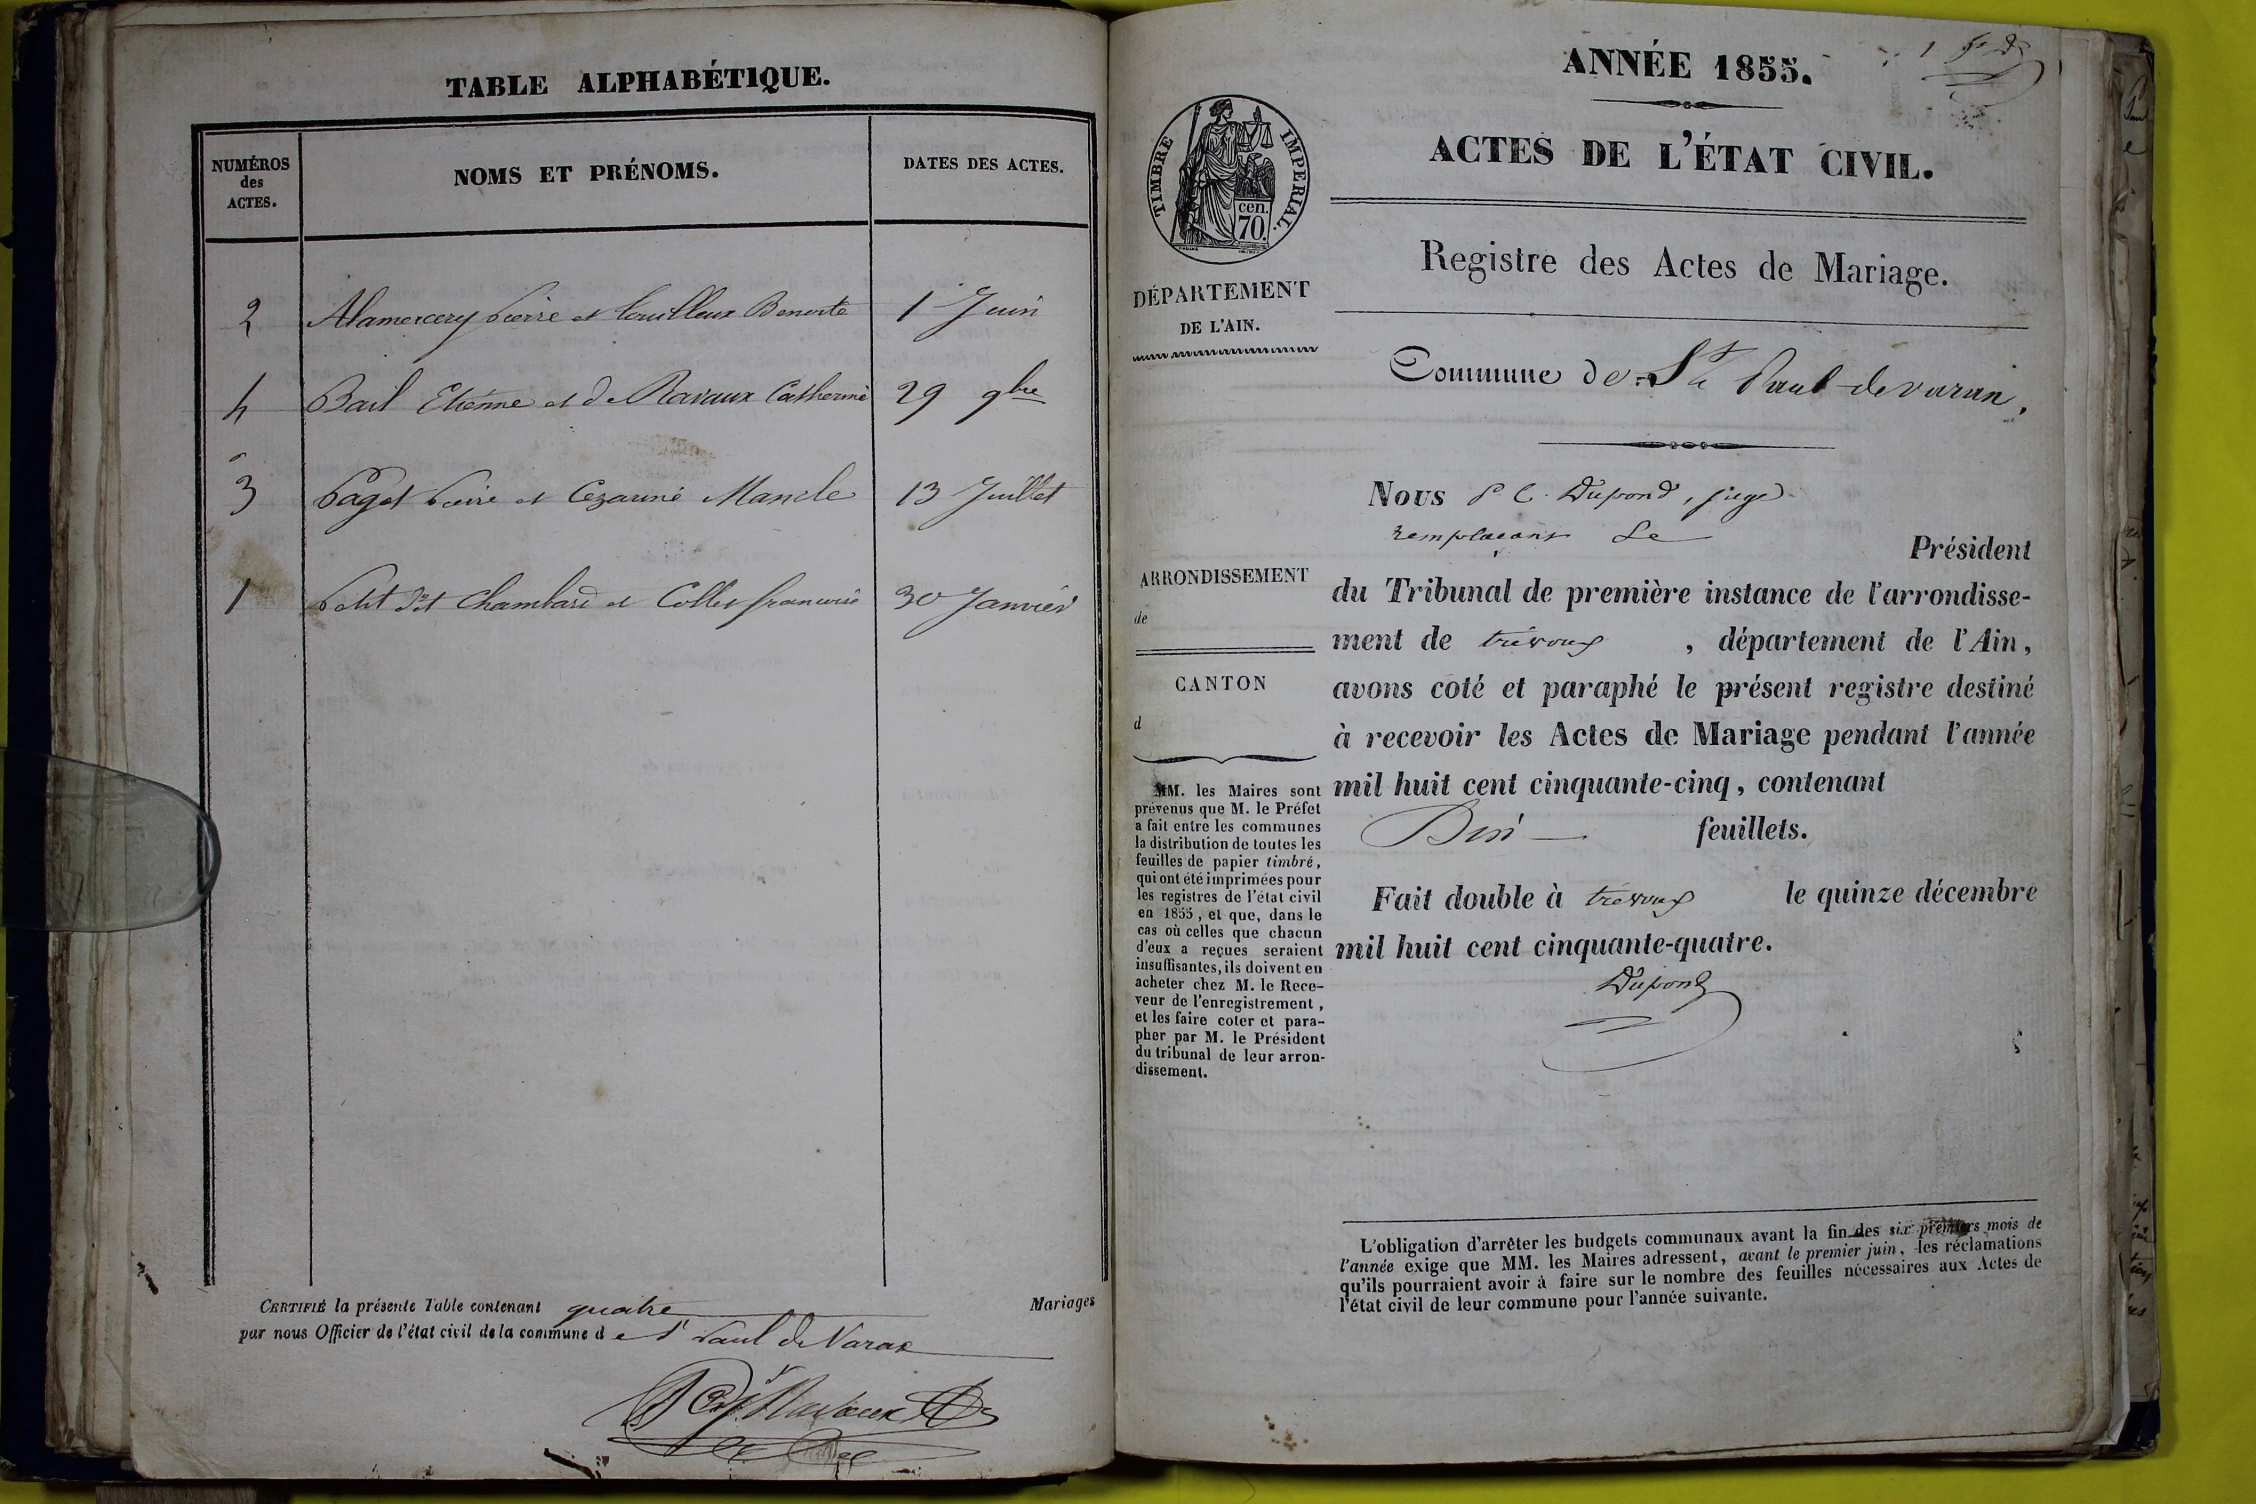 TABLE ALPHABÉTIQUE.
NUMÉROS
des
ACTES.
NOMS ET PRÉNOMS.
DATES DES ACTES.
2 Alamercery Pierre et Benoite 1 Juin
4 Bail Etienne et de Ravaux Catherine 29 9bre
3 Paget Pierre et Cezarine Mancle 13 Juillet
1 Petit dit Chambard et Collet francoise 30 Janvier
CERTIFIÉ la présente Table contenant quatre Mariages
par nous Officier de l'état civil de la commune d e St Paul de Varax
ANNÉE 1855.
ACTES DE L'ÉTAT CIVIL.
TIMBRE IMPERIAL.
cen.
70.
Registre des Actes de Mariage.
DÉPARTEMENT
DE L'AIN.
Commune de St Paul-de varax.
Nous P C. Dupond, juge
remplaçant Le
Président
du Tribunal de première instance de l'arrondisse-
ment de trévoux , département de l'Ain,
avons coté et paraphé le présent registre destiné
à recevoir les Actes de Mariage pendant l'année
mil huit cent cinquante-cinq, contenant
feuillets.
Fait double à trévoux le quinze décembre
mil huit cent cinquante-quatre.
Dupond
ARRONDISSEMENT
de
CANTON
d
MM. les Maires sont
prévenus que M. le Préfet
a fait entre les communes
la distribution de toutes les
feuilles de papier timbré,
qui ont été imprimées pour
les registres de l'état civil
en 1855, et que, dans le
cas où celles que chacun
d'eux a reçues seraient
insuffisantes, ils doivent en
acheter chez M. le Rece-
veur de l'enregistrement,
et les faire coter et para-
pher par M. le Président
du tribunal de leur arron-
dissement.
L'obligation d'arrêter les budgets communaux avant la fin des six premiers mois de
l'année exige que MM. les Maires adressent, avant le premier juin, les réclamations
qu'ils pourraient avoir à faire sur le nombre des feuilles nécessaires aux Actes de
l'état civil de leur commune pour l'année suivante.